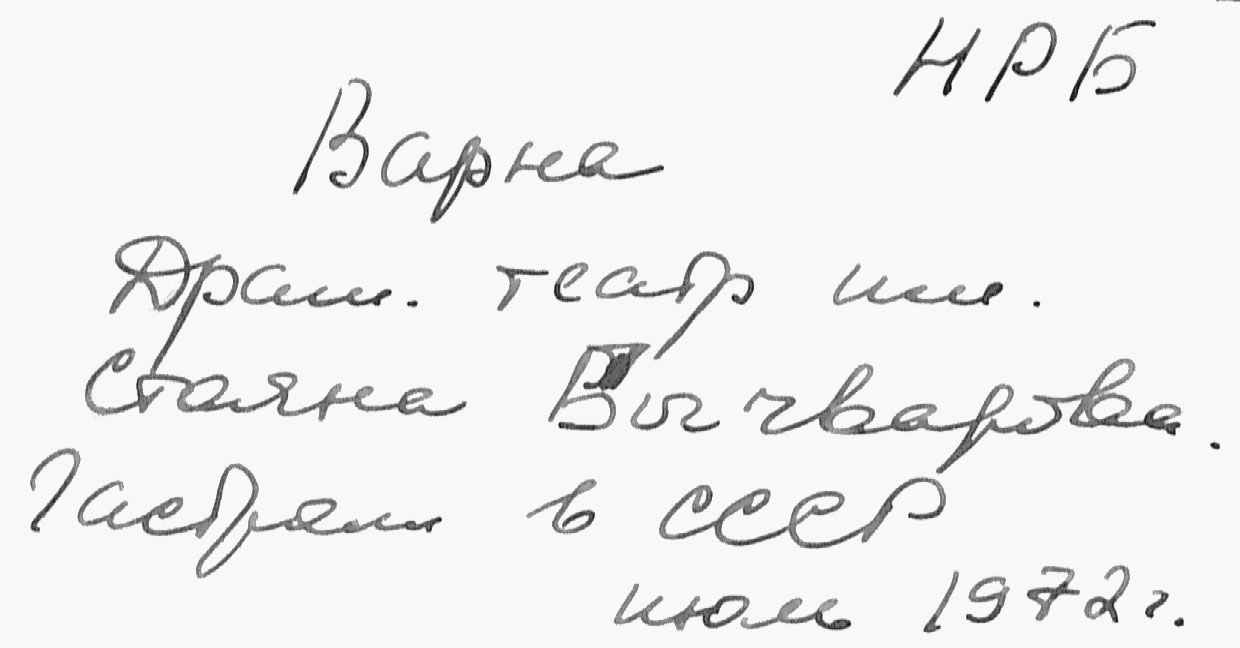 НРБ
Варна
Драм. театр им.
Стояна Бычварова.
Гастроли в СССР
июль 1972 г.